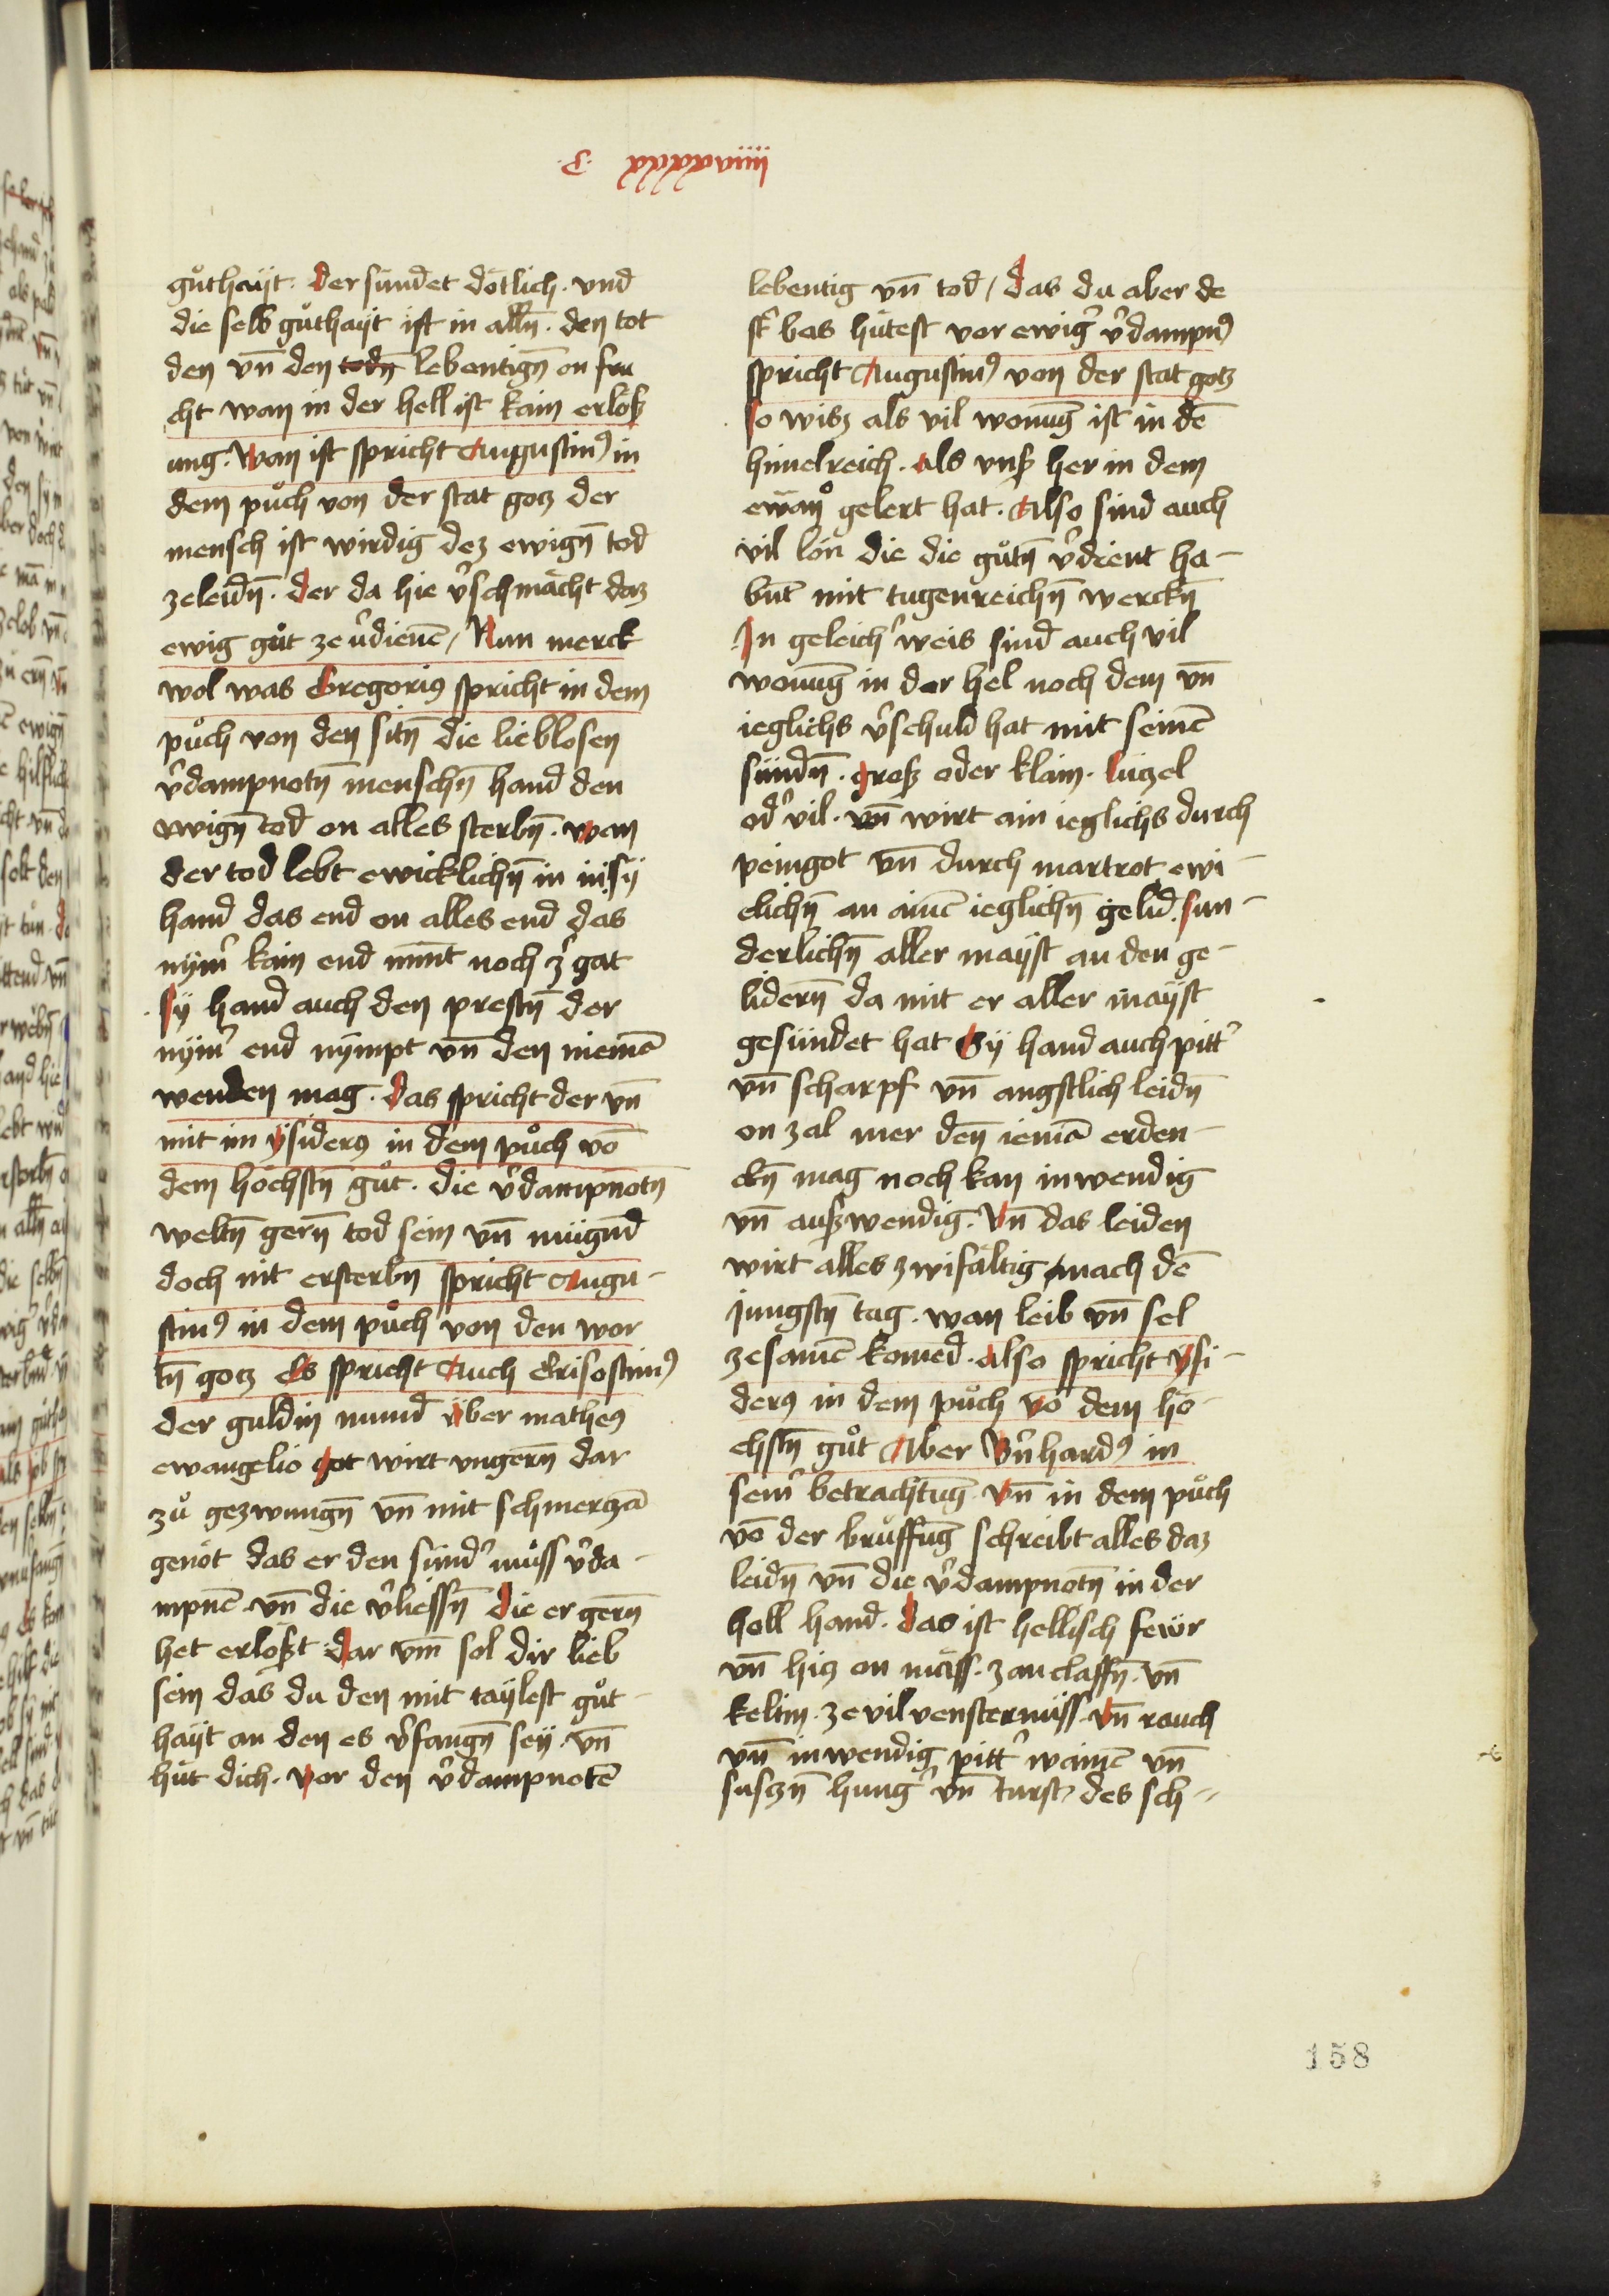 ·C· xxxxxviiii
gůthayt. Der sündet dötlich. vnd
die selb gůthayt ist in alln̄. den tot
den vn̄ den todn̄ lebentign̄ on fru
cht wan in der hell ist kain erlöß
ung. Wan ist spricht Augustin⁹ in
dem půch von der stat gotz der
mensch ist wirdig dez ewign̄ tod
zeleidn̄. Der da hie v̓schmächt daz
ewig gůt ze v̓dienē / Nun merck
wol was Gregori⁹ spricht in dem
půch von den sitn̄ die lieblosen
v̓dampnotn̄ menschn̄ hand den
ewign̄ tod on alles sterbn̄. wan
der tod lebt ewicklichn̄ in in sy
hand das end on alles end das
nym̓ kain end nimt noch z̓gat
Sy hand auch den prestn̄ der
nym̓ end nympt vn̄ den niemā
wenden mag. Das spricht der vn̄
mit im ysider⁹ in dem půch vō
dem höchstn̄ gůt. die v̓dampnotn̄
weltn̄ gern̄ tod sein vn̄ mügnd
doch nit ersterbn̄ spricht Augu-
stin⁹ in dem půch von den wor
tn̄ gotz Es spricht Auch Crisostim⁹
der guldin mund über mathe⁹
ewangelio got wirt vngern̄ dar
zů gezwungn̄ vn̄ mit schmerczā
genöt das er den sünd̓ můss v̓da-
mpnē vn̄ die v̓liessn̄ die er gern̄
het erlößt dar vm̄ sol dir lieb
sein das du den mit taylest gůt-
hayt an den es v̓fangn̄ sey. vn̄
hüt dich. vor den v̓dampnotē
lebentig vn̄ tod / Das du aber de
st̓ bas hütest vor ewig̓ v̓dampn⁹
spricht Augustin⁹ von der stat gotz
so wisz als vil wonūg ist in dē
himelreich. Als vnß her in dem
ewāⁿ gelert hat. Also sind auch
vil lön die die gůtn̄ v̓dient ha-
bnt mit tugenreichn̄ werckn̄
In geleich̓ weis sind auch vil
wonūg in der hel noch dem vn̄
ieglichs v̓schuld hat mit seinē
sündn̄. groß oder klain. lüczel
od̓ vil. vn̄ wirt ain ieglichs durch
peingot vn̄ durch martrot ewi-
clichn̄ an ainē ieglichn̄ gelid. sun-
derlichn̄ aller mayst an den ge-
lidern̄ da mit er aller mayst
gesündet hat Sy hand auch pitt̓
vn̄ scharpf vn̄ angstlich leidn̄
on zal mer den̄ iemā erden-
ckn̄ mag noch kan inwendig
vn̄ außwendig. Vn̄ das leiden
wirt alles zwifältig nach dē
jungstn̄ tag. wan leib vn̄ sel
zesamē komēd. also spricht ysi-
der⁹ in dem půch vō dem hö-
chstn̄ gůt Aber B̓nhard⁹ in
sein̓ betrachtūg vn̄ in dem půch
vō der brüffūg schreibt alles daz
leidn̄ vn̄ die v̓dampnotn̄ in der
hell hand. das ist hellisch fewr
vn̄ hicz on mäss. zanclaffn̄. vn̄
keltin. ze vil vensternüss. vn̄ rauch
vn̄ inwendig pitt̓ wainē vn̄
sufczn̄ hung̓ vn̄ turst, des sch-
158